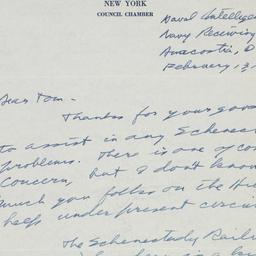 NEW YORK
COUNCIL CHAMBER
Naval Intelligen
Navy Receiving
Anacostia, D
February 13
Dear Tom-
Thanks for your good
to assist in any Schenec
problems. There is one of con
concern, but I don't know
much you folks on the Hi
help under present circu
The Schenectady Railw